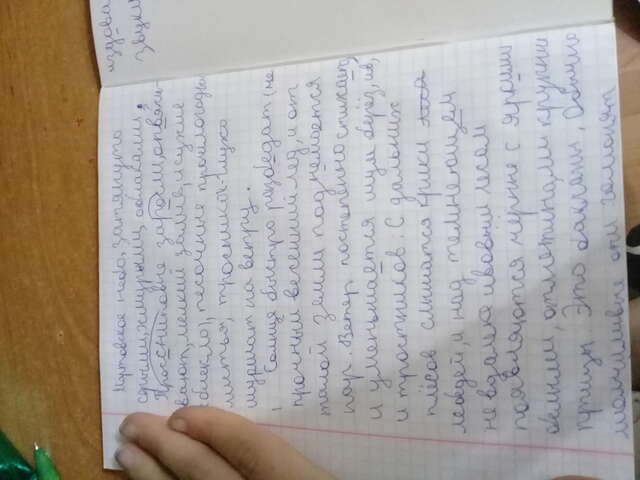 Мартовское небо, затянуто
серыми, хмурыми облаками,
Тросниковые заросли опвяси-
вают, мелкий залив, и сухие
блекло, песочные прошлогодн
листья, тросников глухо
шуршат на ветру.
Солнце быстро разбедат (не
прочный весенний лед, и от
талой земли поднемается
пар. Ветер постепенно стихает,
и уменьшается шум берёз, ив,
и тростников. С дальних
плёсов слышатся крики
лебедей, и над темнеющем
не вдалеке ивовым лесом
появляются чёрные с яркими
белыми, отметинами крупные
птицы Это бакланы, Обычно
молчаливые они гомонят
издова
звуки